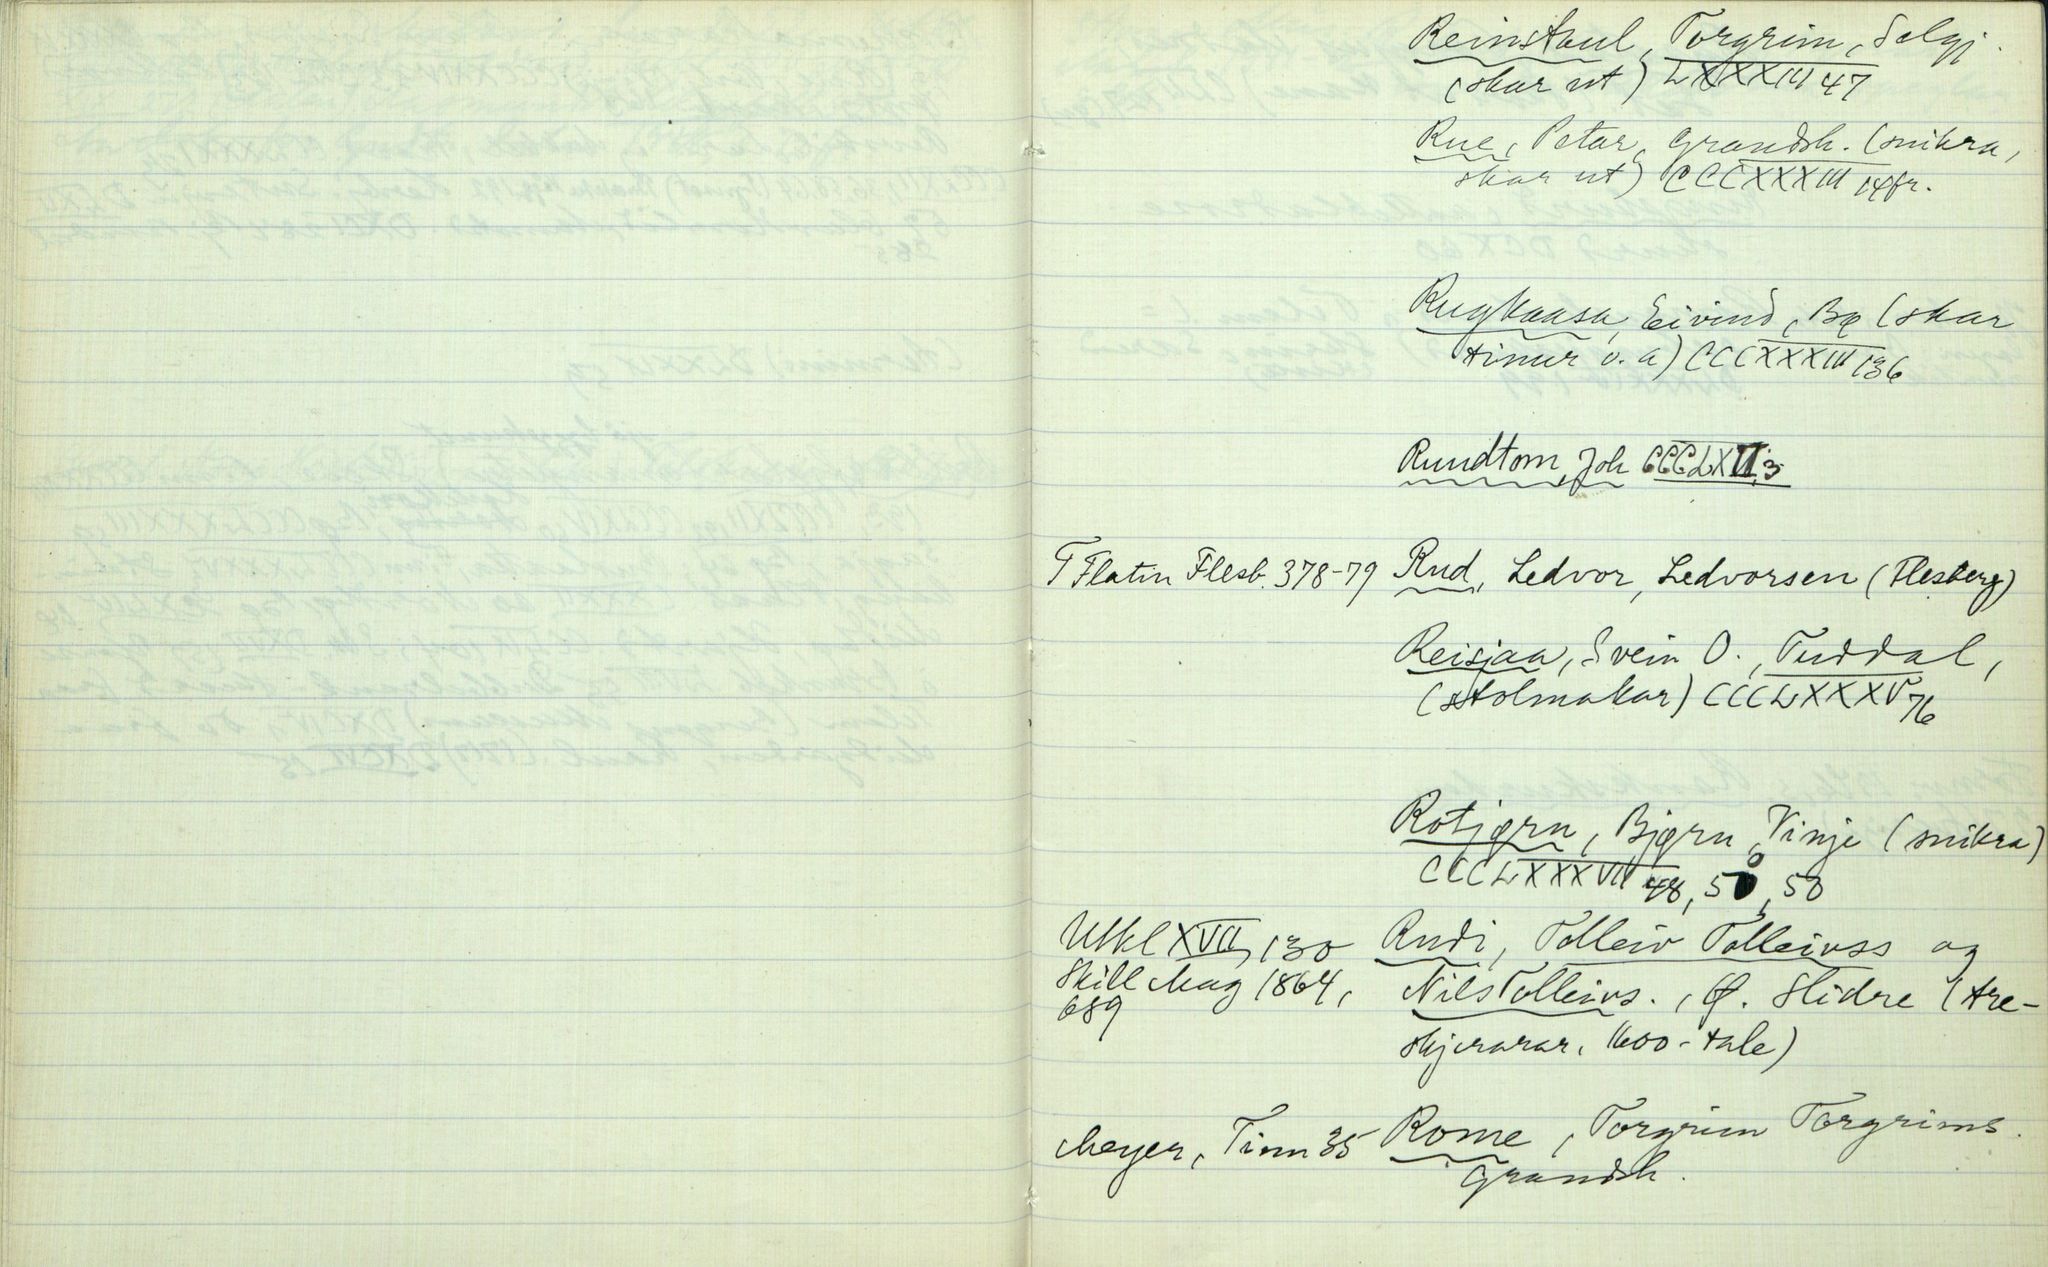 Reinstaul, Torgrim, Selgj.
(skar ut) LXXXIII 47
Rue, Petar, Grandsh. (snikra,
skar ut) CCCXXXIII 14 fr.
Rugkaasa, Eivind, Bø (skar
tinur o. a) CCCXXXIII 136
Rundtom, Joh CCCLXVI, 3
T Flatin Flesb. 378-79 Rud, Ledvor, Ledvorsen (Flesberg)
Reisjaa, Svein O., Tuddal,
(stolmakar) CCCLXXXV 76
Rotjørn, Bjørn, Vinje (snikra)
CCCLXXXVII 48, 50, 50
Utkl XVII, 130 Rudi, Tolleiv Tolleivss og
Skill Mag 1864, Nils Tolleivs., Ø. Slidre (tre-
689 skjerarar, 1600-tale)
Meyer, Tinn 35 Rome, Torgrim Torgrims.
Grandsh.